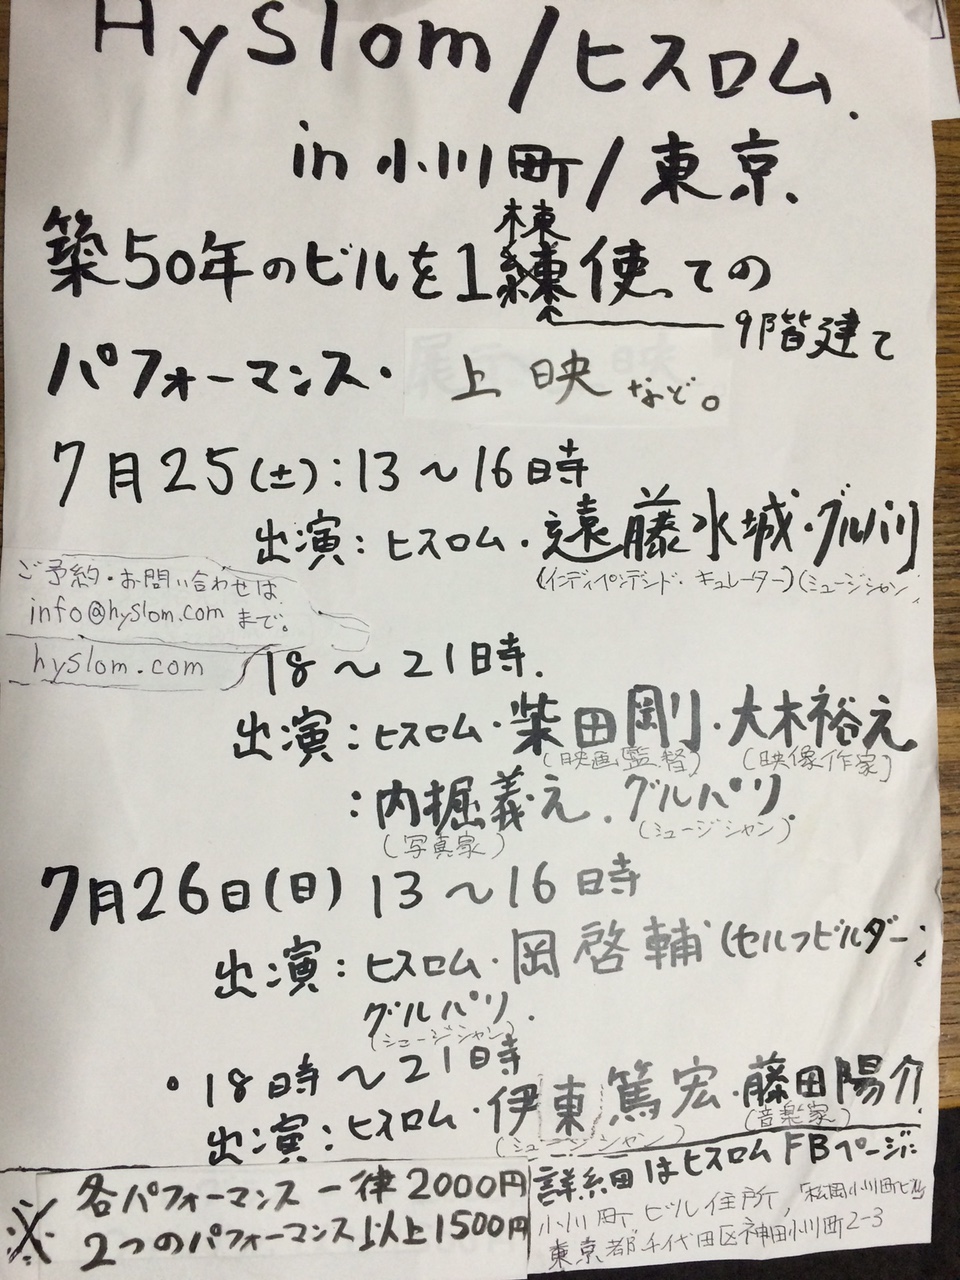 Hyslom/ヒスロム.
in 小川町/東京.
築50年のビルを1棟使ての
9階建て
パフォーマンス・上映など。
7月25(土):13〜16時
出演:ヒスロム・遠藤水城・グルパリ
(インディペンデント・キュレーター)(ミュージシャン
ご予約・お問い合わせは
info@hyslom.comまで。
hyslom.com
18〜21時.
出演:ヒスロム・柴田剛・大木裕え
(映画監督) (映像作家)
:内堀義え.グルパリ.
(写真家) (ミュージシャン)
7月26日(日) 13〜16時
出演:ヒスロム・岡啓輔(セルフビルダー)
グルパリ.
(ミュージシャン)
・18時〜21時
出演:ヒスロム・伊東篤宏・藤田陽介
(ミュージシャン) (音楽家)
※各パフォーマンス一律2000円
2つのパフォーマンス以上1500円
詳細はヒスロムFBページに
小川町ビル住所,「松岡小川町ビル」
東京都千代田区神田小川町2-3